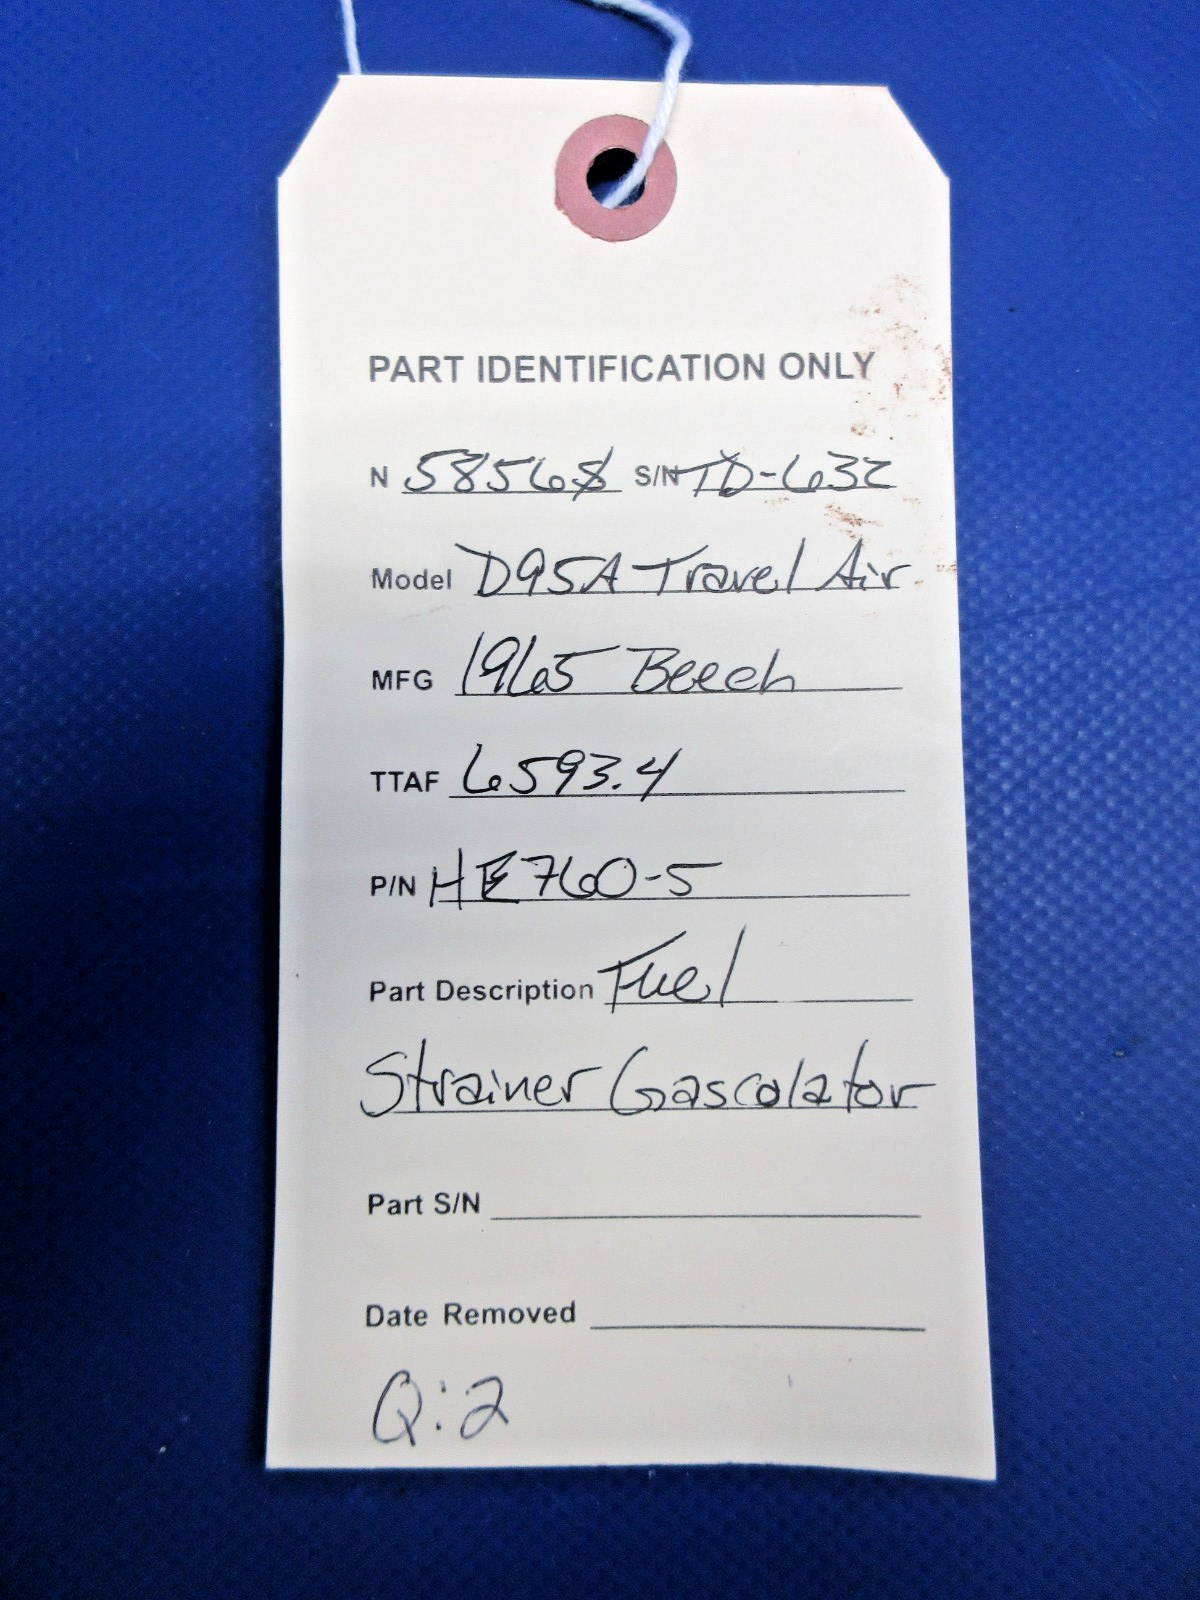 PART IDENTIFICATION ONLY
N 5856S S/N TD-632
Model D95A Travel Air
MFG 1965 Beech
TTAF 6593.4
P/N HE760-5
Part Description Fuel
Strainer Gascolator
Part S/N
Date Removed
Q:2